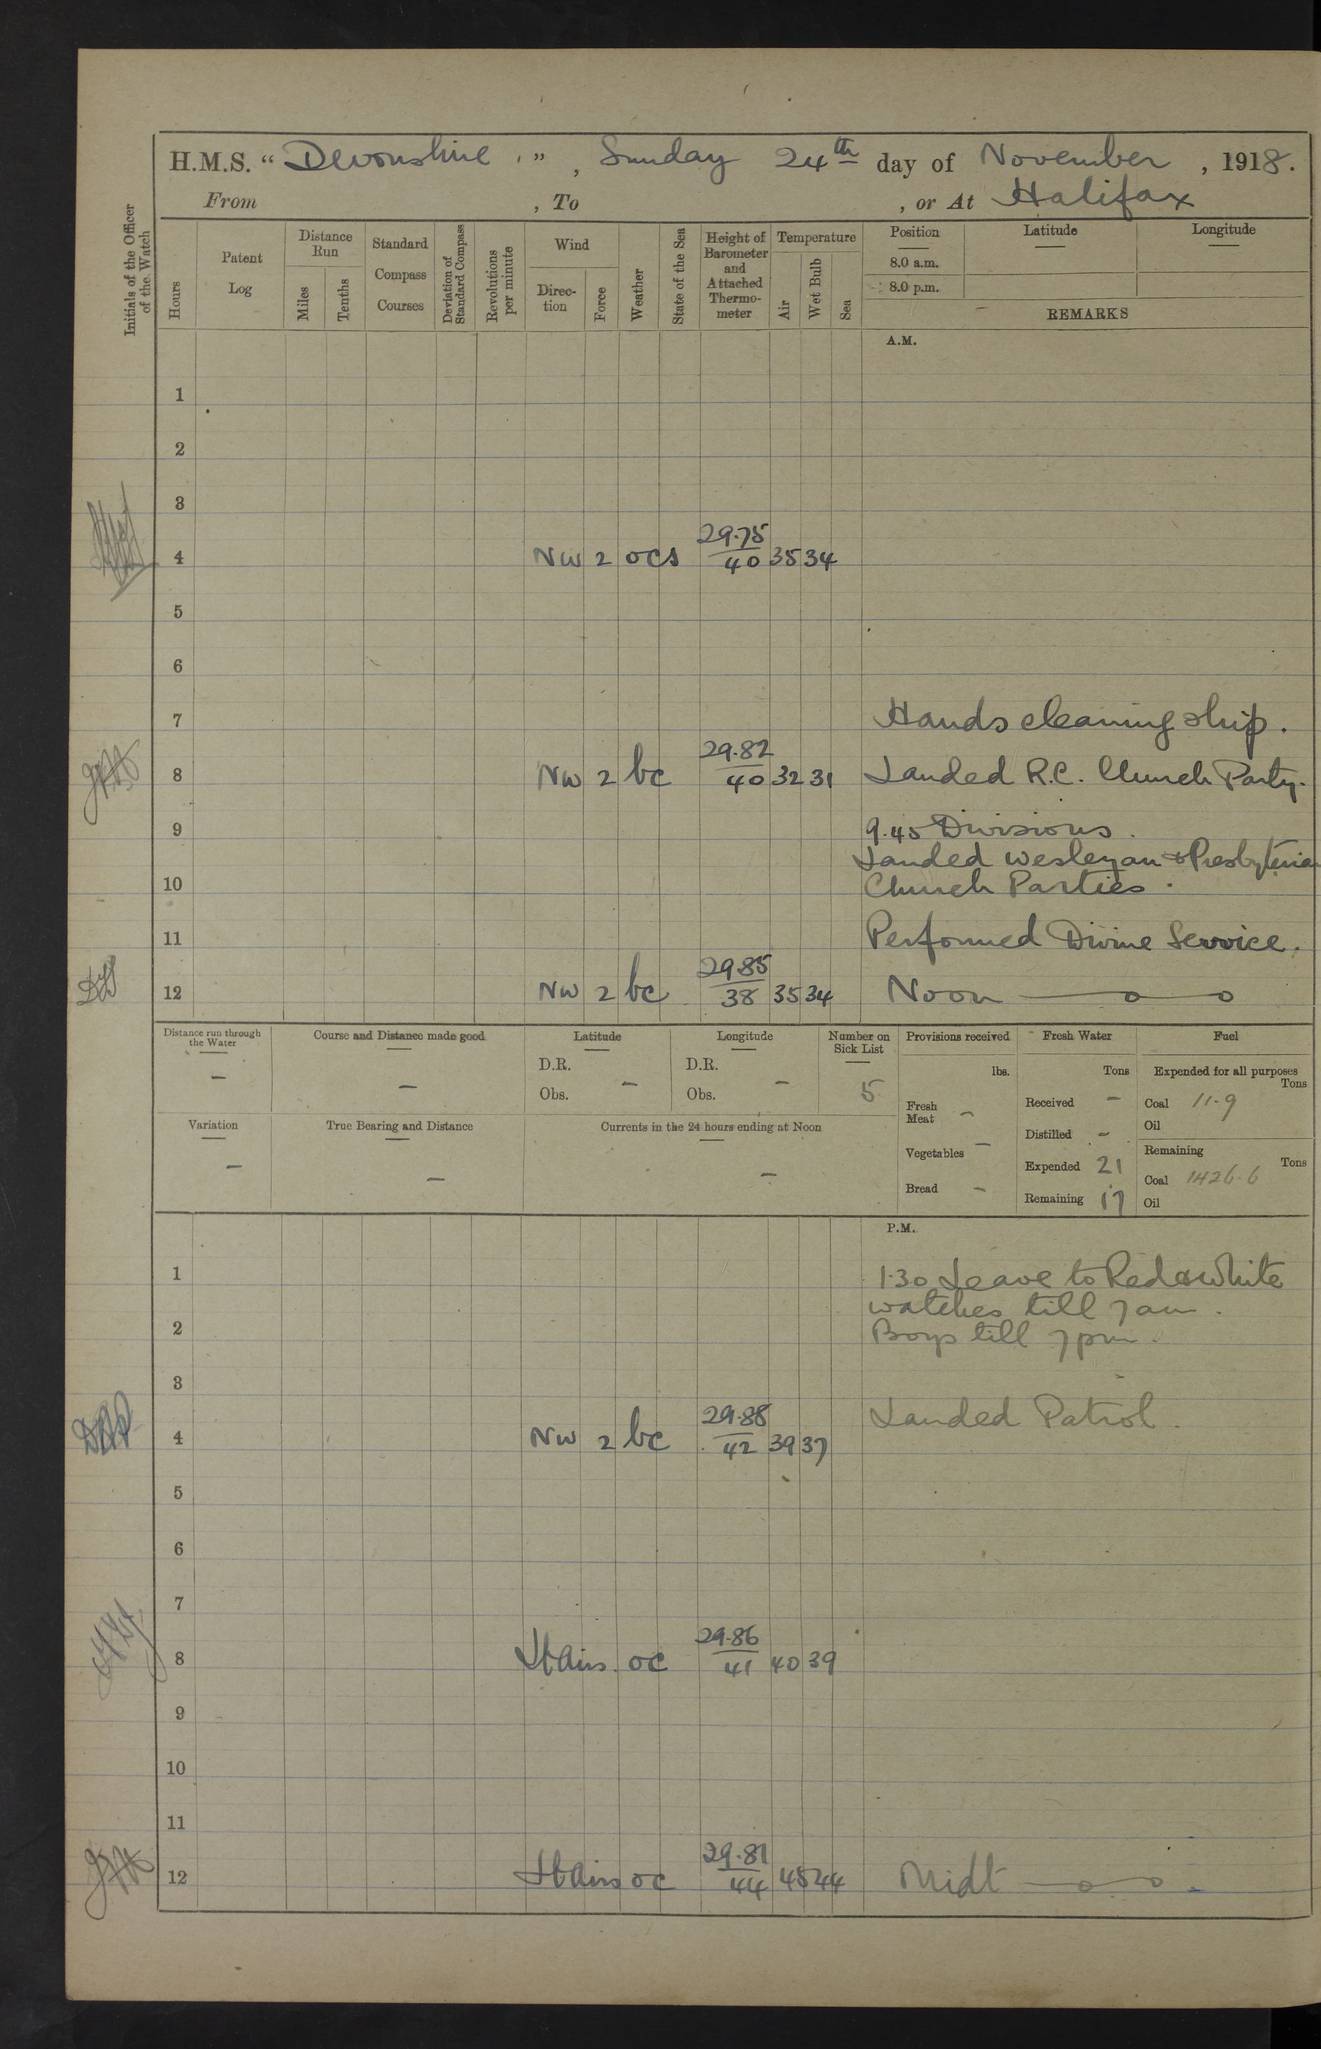 H.M.S. “ Devonshire ”, Sunday 24th day of November, 1918.
From , To , or At Halifax
Initials of the Officer of the Watch
Hours
Patent Log
Distance Run
Miles
Tenths
Standard Compass Courses
Deviation of Standard Compass
Revolutions per minute
Wind
Direction
Force
Weather
State of the Sea
Height of Barometer and Attached Thermometer
Temperature
Air
Wet Bulb
Sea
Position
Latitude
Longitude
8.0 a.m.
8.0 p.m.
REMARKS
A.M.
1
2
3
4 NW 2 ocs 29.75/40 35 34
5
6
7 Hands cleaning ship.
8 NW 2 bc 29.82/40 32 31 Landed R.C. Church Party.
9 9.45 Divisions.
Landed Wesleyan & Presbyterian
10 Church Parties.
11 Performed Divine Service.
12 NW 2 bc 29.85/38 35 34 Noon
Distance run through the Water
–
Course and Distance made good
–
Latitude
D.R.
Obs. –
Longitude
D.R.
Obs. –
Number on Sick List
5
Provisions received
lbs.
Fresh Meat –
Vegetables –
Bread –
Fresh Water
Tons
Received –
Distilled –
Expended 21
Remaining 17
Fuel
Expended for all purposes
Tons
Coal 11.9
Oil
Remaining
Tons
Coal 1426.6
Oil
Variation
–
True Bearing and Distance
–
Currents in the 24 hours ending at Noon
–
P.M.
1 1.30 Leave to Red & White
watches till 7am.
2 Boys till 7pm.
3
4 NW 2 bc 29.88/42 39 37 Landed Patrol.
5
6
7
8 Lt Airs. oc 29.86/41 40 39
9
10
11
12 Lt Airs oc 29.81/44 45 44 Midt